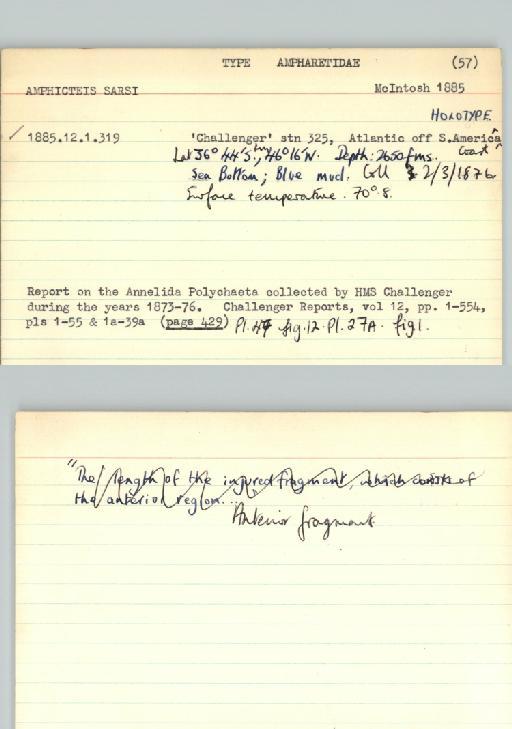 TYPE AMPHARETIDAE (57)
AMPHICTEIS SARSI McIntosh 1885
HOLOTYPE
✓ 1885.12.1.319 'Challenger' stn 325, Atlantic off S.America Coast
Lat 36° 44' S., 46° 16' N. Depth: 2650 fms.
Sea Bottom; Blue mud. Coll 2/3/1876
Surface temperature. 70°.8.
Report on the Annelida Polychaeta collected by HMS Challenger
during the years 1873-76. Challenger Reports, vol 12, pp. 1-554,
pls 1-55 & 1a-39a (page 429) Pl. 47 fig.12. Pl. 27A. fig 1.
"The length of the injured fragment, which consists of
the anterior region...
Anterior fragment